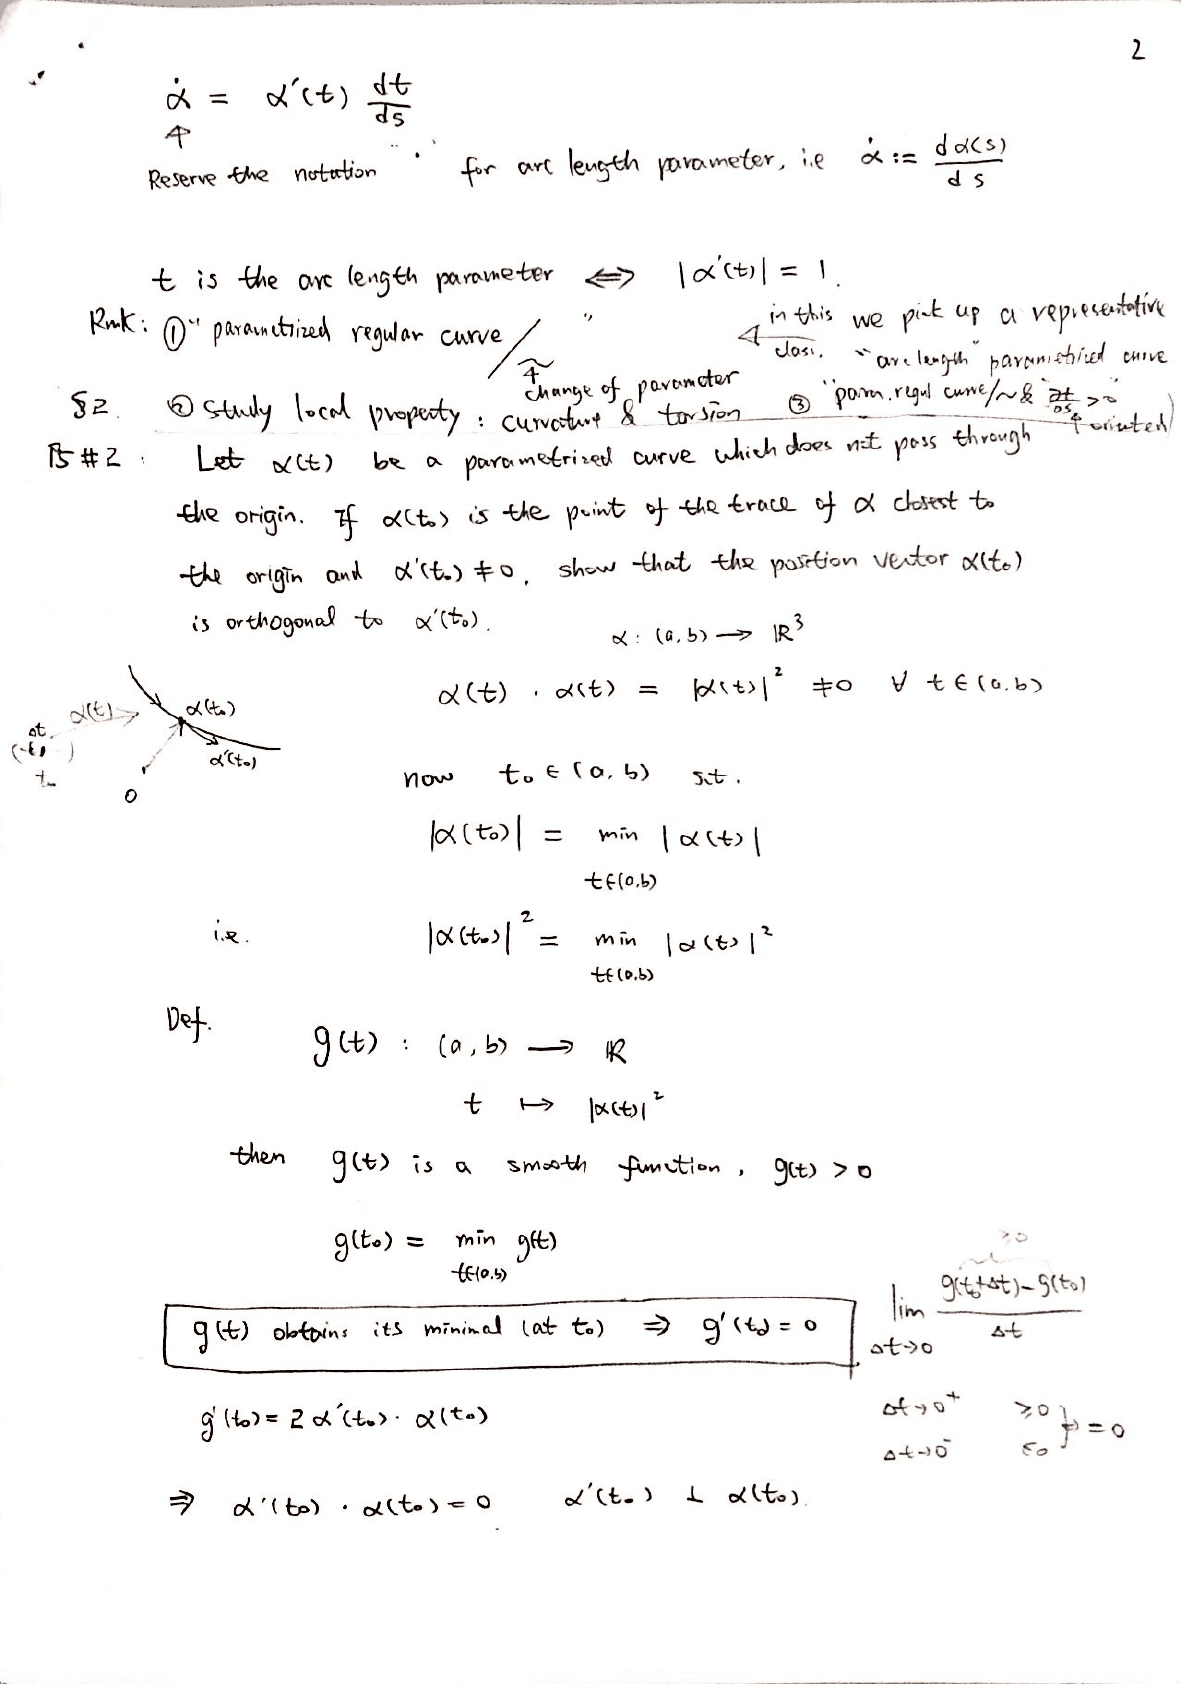 2
α̇ = α'(t) dt/ds
↑
Reserve the notation " ˙ " for arc length parameter, i.e α̇ := dα(s)/ds
t is the arc length parameter ⟺ |α'(t)| = 1.
Rmk: ① "parametrized regular curve / ~ " ← in this class. we pick up a representative
↑ change of parameter "arc length" parametrized curve
§2. ② Study local property : curvature & torsion ③ "param. regul curve/~ & ∂t/∂s > 0" ↑ oriented
P5 #2 : Let α(t) be a parametrized curve which does not pass through
the origin. If α(t₀) is the point of the trace of α closest to
the origin and α'(t₀) ≠ 0, show that the position vector α(t₀)
is orthogonal to α'(t₀).
α : (a,b) → ℝ³
α(t) · α(t) = |α(t)|² ≠ 0 ∀ t ∈ (a,b)
α(t) α(t₀)
α'(t₀)
0
now t₀ ∈ (a,b) s.t.
|α(t₀)| = min |α(t)|
t∈(a,b)
i.e. |α(t₀)|² = min |α(t)|²
t∈(a,b)
Def. g(t) : (a,b) → ℝ
t ↦ |α(t)|²
then g(t) is a smooth function, g(t) > 0
g(t₀) = min g(t)
t∈(a,b)
g(t) obtains its minimal (at t₀) ⇒ g'(t₀) = 0
≥0
lim g(t₀+Δt)-g(t₀) / Δt
Δt→0
Δt→0⁺ ≥0
Δt→0⁻ ≤0 } ⇒ = 0
g'(t₀) = 2 α'(t₀) · α(t₀)
⇒ α'(t₀) · α(t₀) = 0 α'(t₀) ⊥ α(t₀).